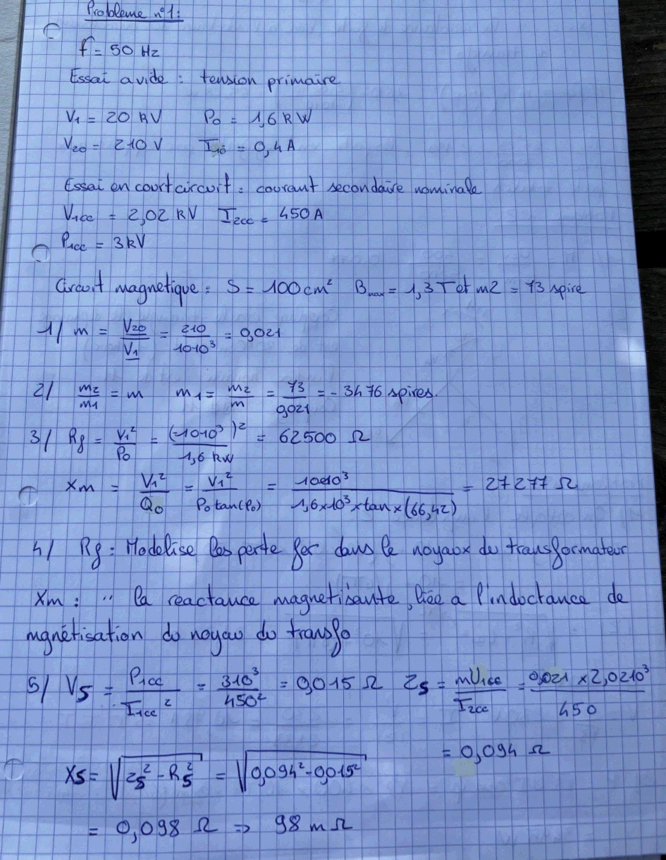 Problème n°1:
f = 50 Hz
Essai a vide : tension primaire
V1 = 20 kV P0 = 1,6 kW
V20 = 210 V I10 = 0,4 A
Essai en court circuit = courant secondaire nominale
V1cc = 2,02 kV I2cc = 450 A
P1cc = 3 kV
Circuit magnetique = S = 100 cm² Bmax = 1,3 T et m2 = 73 spire
1/ m = V20/V1 = 210/10 10³ = 0,021
2/ m2/m1 = m m1 = m2/m = 73/0,021 = - 3476 spires.
3/ Rf = V1²/P0 = (10 10³)²/1,6 kW = 62500 Ω
Xm = V1²/Q0 = V1²/P0 tan(P0) = 10 10³/1,6 x 10³ x tan x (66,42) = 27 277 Ω
4/ Rf = Modelise les perte fer dans le noyaux du transformateur
Xm : " la reactance magnetisante, liée a l'inductance de
mgnétisation du noyau du transfo
5/ VS = P1cc/I1cc² = 3 10³/450² = 0,015 Ω ZS = mU1cc/I2cc = 0,021 x 2,02 10³/450
= 0,094 Ω
XS = √(ZS² - RS²) = √(0,094² - 0,015²)
= 0,098 Ω => 98 mΩ